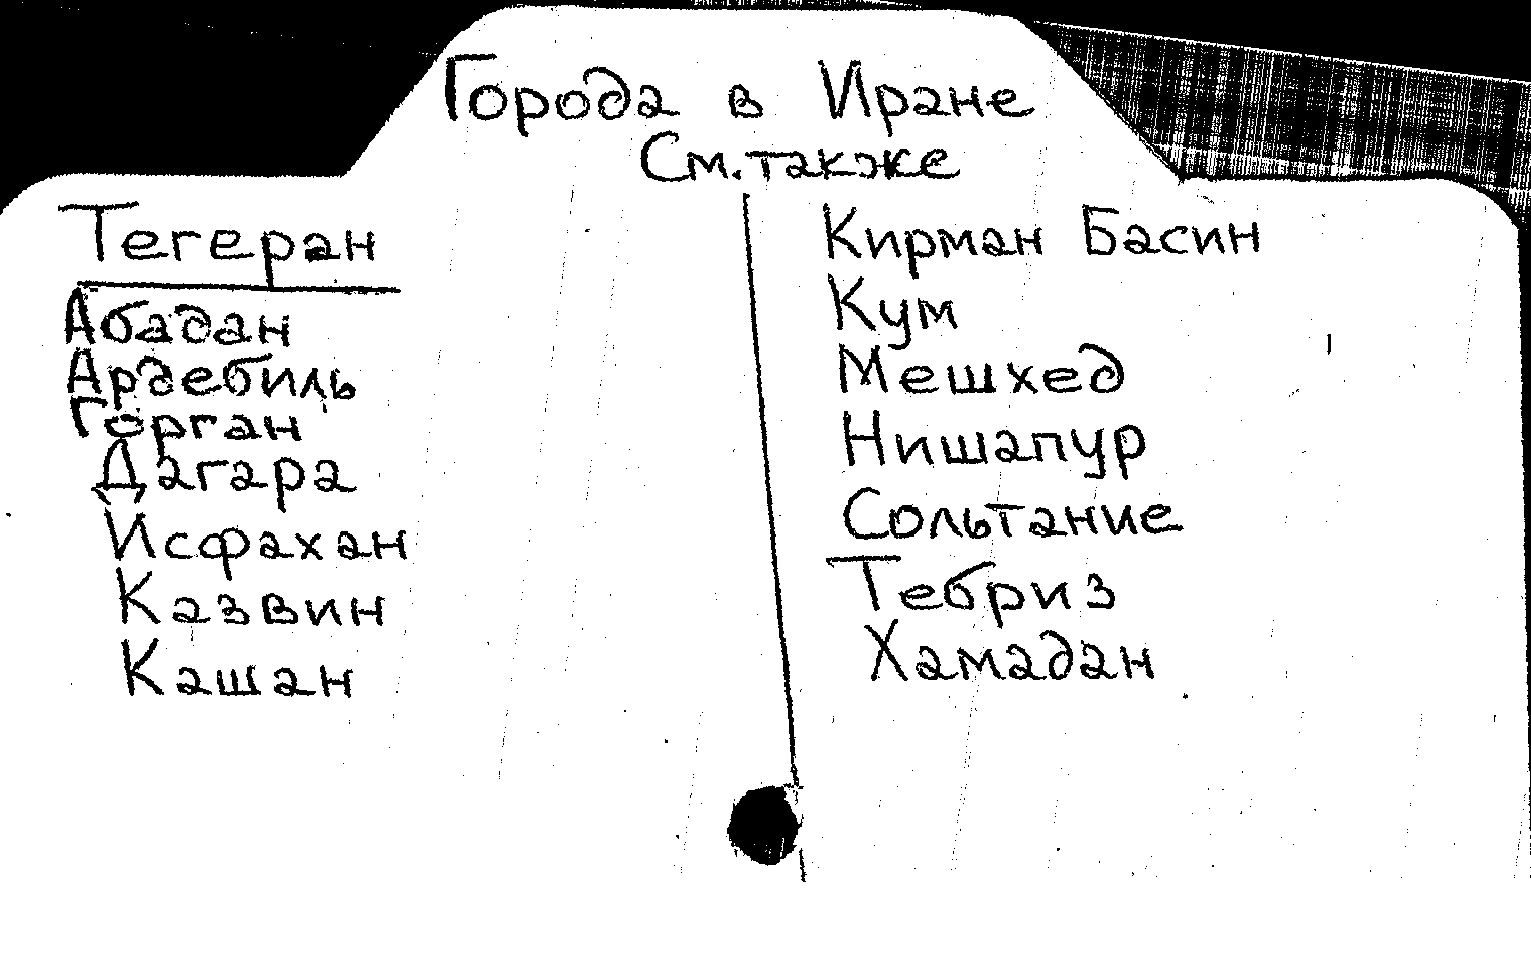 Города в Иране
См. также
Тегеран
Абадан
Ардебиль
Горган
Дагара
Исфахан
Казвин
Кашан
Кирман Басин
Кум
Мешхед
Нишапур
Сольтание
Тебриз
Хамадан